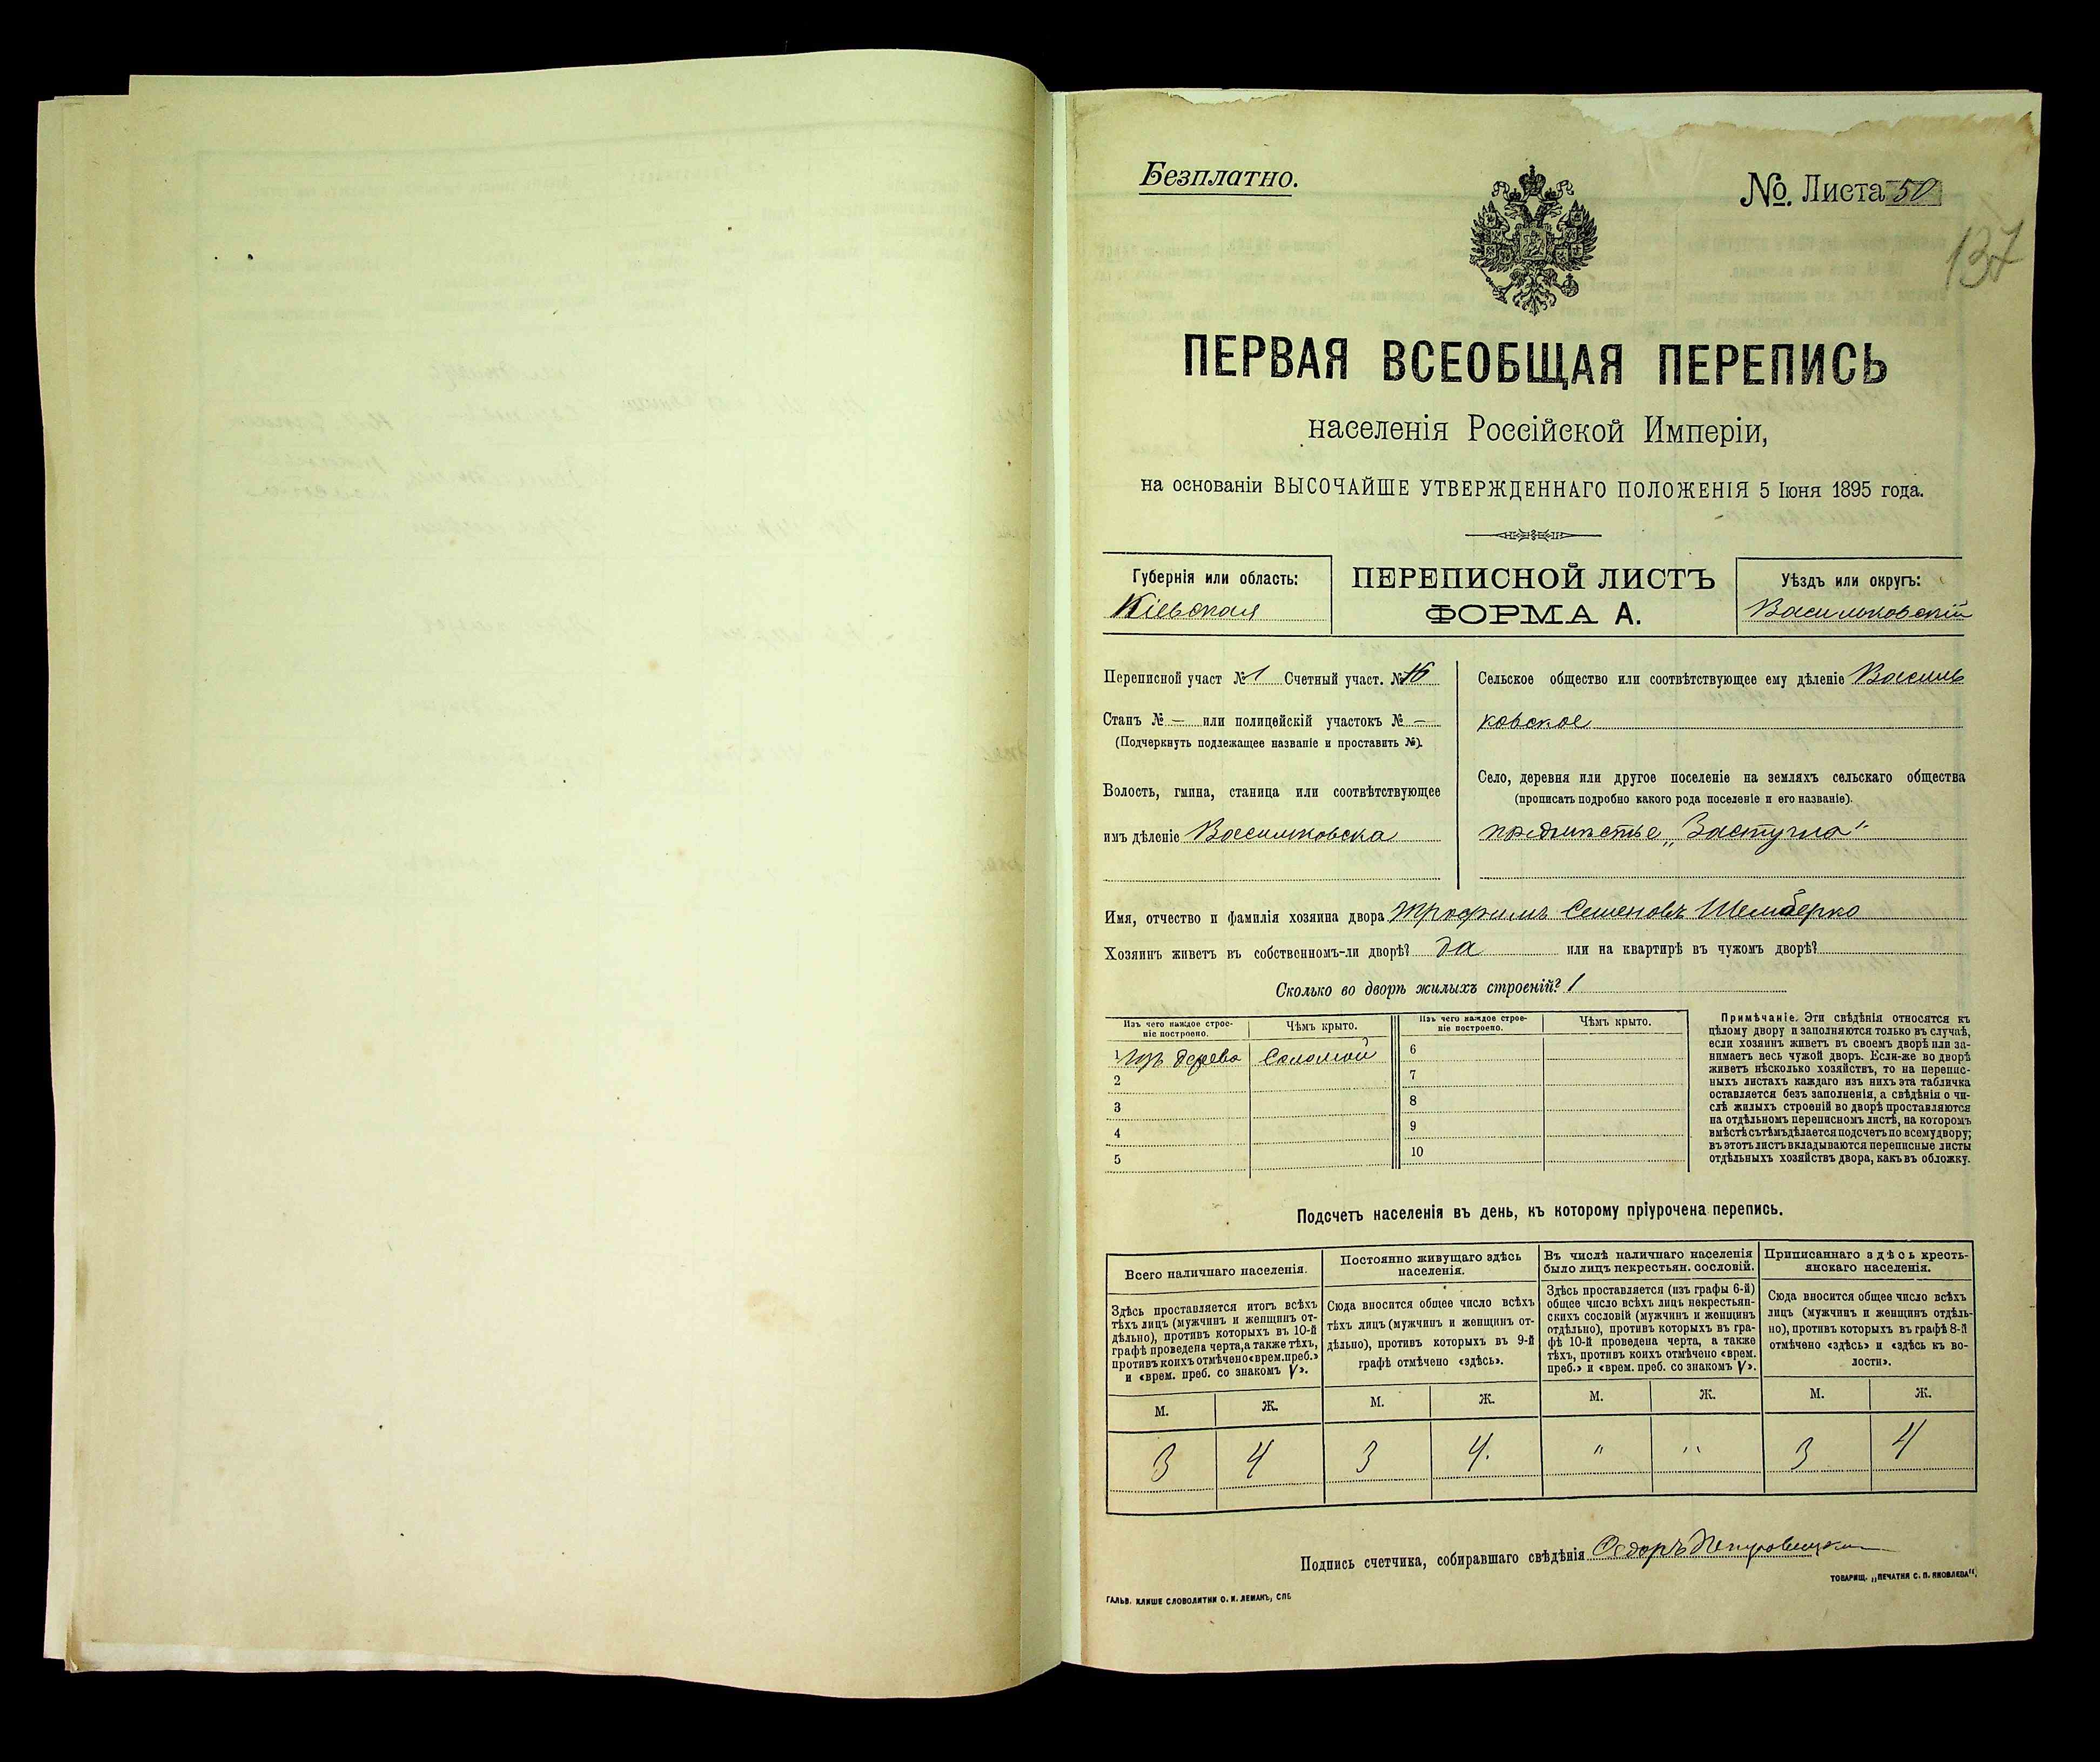 Безплатно.
№. Листа 50
137
ПЕРВАЯ ВСЕОБЩАЯ ПЕРЕПИСЬ
населенія Россійской Имперіи,
на основаніи ВЫСОЧАЙШЕ УТВЕРЖДЕННАГО ПОЛОЖЕНІЯ 5 Іюня 1895 года.
Губернія или область:
Кіевская
ПЕРЕПИСНОЙ ЛИСТЪ
ФОРМА А.
Уѣздъ или округъ:
Васильковскій
Переписной участ № 1 Счетный участ. № 16
Станъ № — или полицейскій участокъ № —
(Подчеркнуть подлежащее названіе и проставить №).
Волость, гмина, станица или соотвѣтствующее
имъ дѣленіе Васильковска
Сельское общество или соотвѣтствующее ему дѣленіе Василь
ковское
Село, деревня или другое поселеніе на земляхъ сельскаго общества
(прописать подробно какого рода поселеніе и его названіе).
предмѣстье „Застугна“
Имя, отчество и фамилія хозяина двора Трофимъ Семеновъ Шемберко
Хозяинъ живетъ въ собственномъ-ли дворѣ? да или на квартирѣ въ чужомъ дворѣ?
Сколько во дворѣ жилыхъ строеній? 1
Изъ чего каждое строе-
ніе построено.
Чѣмъ крыто.
Изъ чего каждое строе-
ніе построено.
Чѣмъ крыто.
1 Изъ дерева Соломой 6
2 7
3 8
4 9
5 10
Примѣчаніе. Эти свѣдѣнія относятся къ
цѣлому двору и заполняются только въ случаѣ,
если хозяинъ живетъ въ своемъ дворѣ или за-
нимаетъ весь чужой дворъ. Если-же во дворѣ
живетъ нѣсколько хозяйствъ, то на перепис-
ныхъ листахъ каждаго изъ нихъ эта табличка
оставляется безъ заполненія, а свѣдѣнія о чи-
слѣ жилыхъ строеній во дворѣ проставляются
на отдѣльномъ переписномъ листѣ, на которомъ
вмѣстѣ съ тѣмъ дѣлается подсчетъ по всему двору;
въ этотъ листъ вкладываются переписные листы
отдѣльныхъ хозяйствъ двора, какъ въ обложку.
Подсчетъ населенія въ день, къ которому пріурочена перепись.
Всего наличнаго населенія.
Здѣсь проставляется итогъ всѣхъ
тѣхъ лицъ (мужчинъ и женщинъ от-
дѣльно), противъ которыхъ въ 10-й
графѣ проведена черта, а также тѣхъ,
противъ коихъ отмѣчено «врем. преб.»
и «врем. преб. со знакомъ V».
Постоянно живущаго здѣсь
населенія.
Сюда вносится общее число всѣхъ
тѣхъ лицъ (мужчинъ и женщинъ от-
дѣльно), противъ которыхъ въ 9-й
графѣ отмѣчено «здѣсь».
Въ числѣ наличнаго населенія
было лицъ некрестьян. сословій.
Здѣсь проставляется (изъ графы 6-й)
общее число всѣхъ лицъ некрестьян-
скихъ сословій (мужчинъ и женщинъ
отдѣльно), противъ которыхъ въ гра-
фѣ 10-й проведена черта, а также
тѣхъ, противъ коихъ отмѣчено «врем.
преб.» и «врем. преб. со знакомъ V».
Приписаннаго здѣсь кресть-
янскаго населенія.
Сюда вносится общее число всѣхъ
лицъ (мужчинъ и женщинъ отдѣль-
но), противъ которыхъ въ графѣ 8-й
отмѣчено «здѣсь» и «здѣсь къ во-
лости».
М. Ж. М. Ж. М. Ж. М. Ж.
3 4 3 4. " " 3 4
Подпись счетчика, собиравшаго свѣдѣнія
ТОВАРИЩ. „ПЕЧАТНЯ С. П. ЯКОВЛЕВА“.
ГАЛЬВ. КЛИШЕ СЛОВОЛИТНИ О. И. ЛЕМАНЪ, СПБ